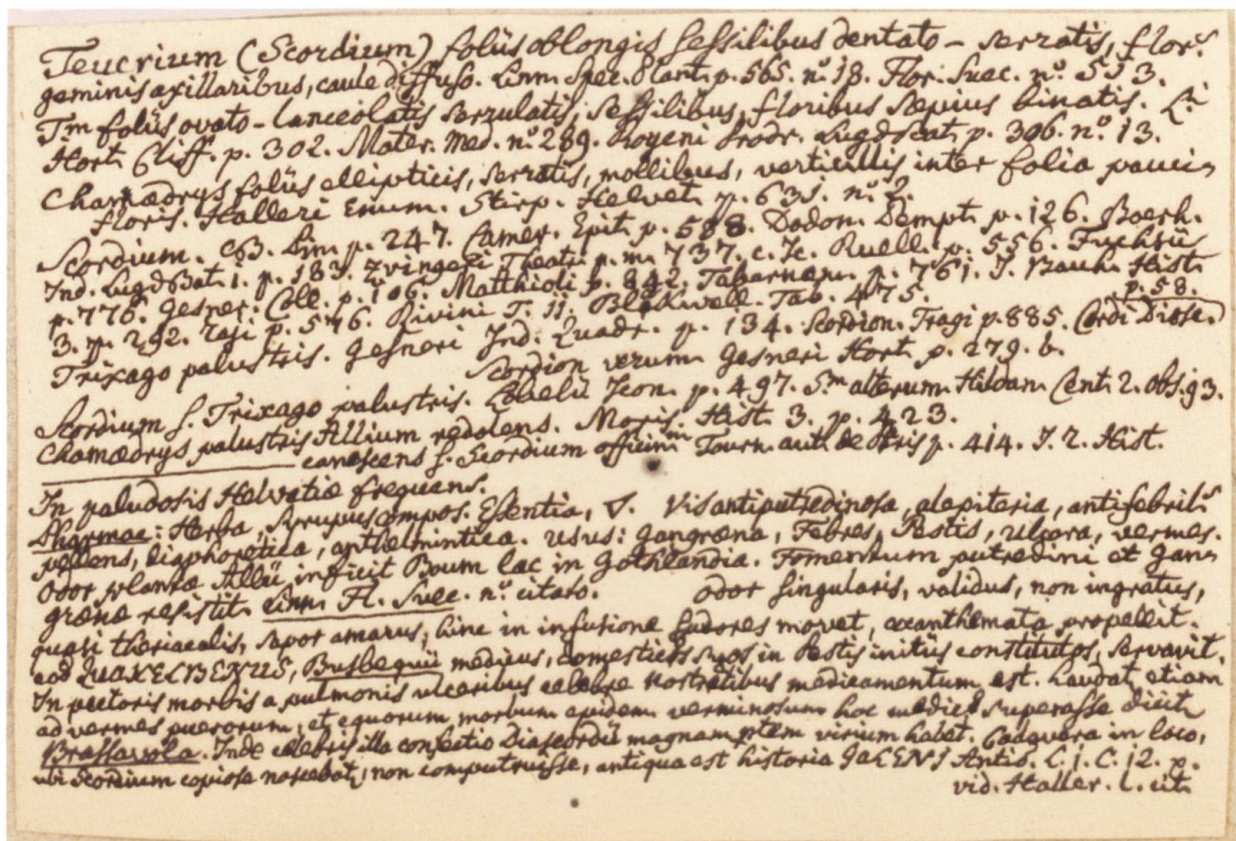 Teucrium (Scordium) foliis oblongis sessilibus dentato-serratis, flor.s
geminis axillaribus, caule diffuso. Linn. Spec. Plant. p. 565. n.o 18. Flor. Suec. n.o
Tm foliis ovato-lanceolatis serrulatis, sessilibus, floribus sæpius binatis. Li.
Hort. Cliff. p. 302. Mater. Med. n.o 289. Royeni Prodr. Lugd Bat. p. 306. n.o 13.
Chamædrys foliis ellipticis, serratis, mollibus, verticillis inter folia pauci-
floris. Halleri Enum. Stirp. Helvet. p. 635. n.o 2.
Scordium. CB. Pin. p. 247. Camer. Epit. p. 588. Dodon. Pempt. p. 126. Boerh.
Ind. Lugd Bat. 1. p. 183. Zvingeri Theatr. p. m. 737. c. Ic. Ruell. p. 556. Fuchsii
p. 776. Gesner. Coll. p. 106. Matthioli p. 842. Tabernæm. p. 761. J. Bauh. Hist.
3. p. 292. Raji p. 576. Rivini T. 11. Blakwell. Tab. 475. p. 58.
Trixago palustris. Gesneri Ind. Quadr. p. 134. Scordion. Tragi p. 885. Cordi Diosc.
Scordion verum Gesneri Hort. p. 279. b.
Scordium s. Trixago palustris. Lobelii Icon. p. 497. Sm alterum. Hildan. Cent. 2. obs. 93.
Chamædrys palustris Allium redolens. Moris. Hist. 3. p. 423.
canescens s. Scordium officin.m Tourn. aut. de Paris p. 414. T. 2. Hist.
In paludosis Helvetiæ frequens.
Pharmac: Herba, Syrupus compos. Essentia, Vis antiputredinosa, alexiteria, antifebrils
pellens, diaphoretica, anthelmintica. Usus: Gangræna, Febres, Pestis, Ulcera, vermes.
Odor plantæ Allii inficit Boum lac in Gothlandia. Fomentum putredini et Gan-
grænæ resistit. Linn. Fl. Svec. n.o citato. Odor singularis, validus, non ingratus,
quasi theriacalis, sapor amarus, hinc in infusione sudores movet, exanthemata propellit.
eod QUAKELBENUS, Busbequii medicus, domesticos suos in Pestis initiis constitutos, servavit.
In pectoris morbis a pulmonis ulceribus celebre nostratibus medicamentum est. Laudat etiam
ad vermes puerorum; et equorum morbum epidem. verminosum hoc medic. superasse dicit
Brassavola. Inde celebris illa confectio Diascordii magnam ptem virium habet. Cadavera in loco,
ubi Scordium copiose nascebat, non computruisse, antiqua est historia GALENI Antid. L. 1. C. 12. p.
vid. Haller. l. cit.